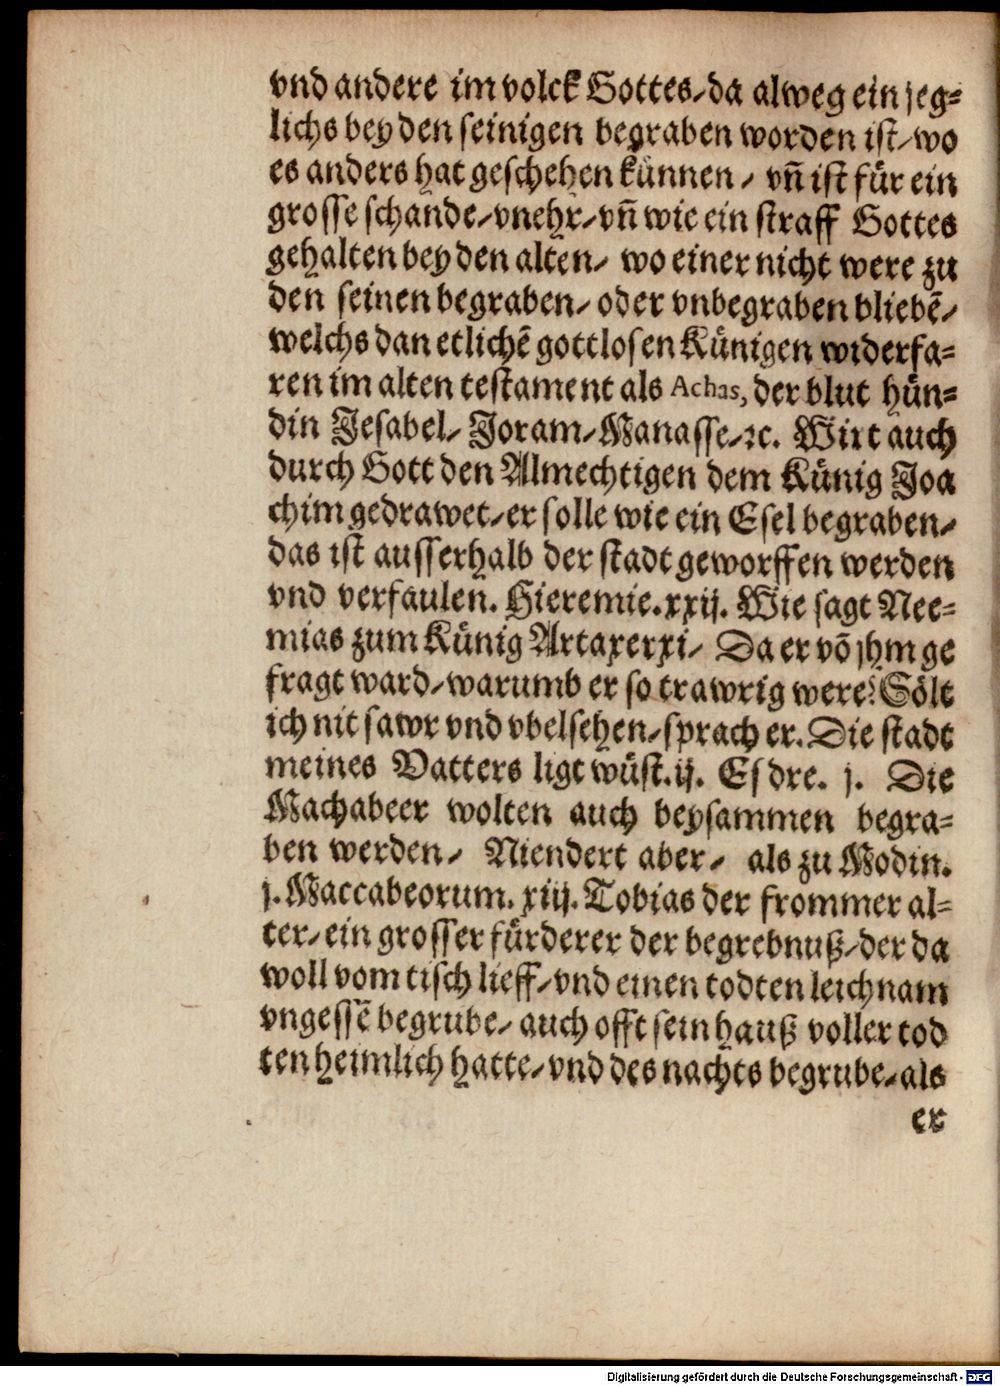 vnd andere im volck Gottes/da alweg ein jeg⸗
lichs bey den seinigen begraben worden ist/wo
es anders hat geschehen künnen / vñ ist für ein
grosse schande/vnehr/vñ wie ein straff Gottes
gehalten bey den alten/ wo einer nicht were zu
den seinen begraben/ oder vnbegraben bliebẽ/
welchs dan etlichẽ gottlosen Künigen widerfa⸗
ren im alten testament als Achas, der blut hün⸗
din Jesabel/ Joram/Manasse/ꝛc. Wirt auch
durch Gott den Almechtigen dem Künig Joa
chim gedrawet/er solle wie ein Esel begraben/
das ist ausserhalb der stadt geworffen werden
vnd verfaulen. Hieremie.xxij. Wie sagt Nee⸗
mias zum Künig Artaxerxi/ Da er võ jhm ge
fragt ward/warumb er so trawrig were? Sölt
ich nit sawr vnd vbelsehen/sprach er. Die stadt
meines Vatters ligt wüst.ij. Esdre. j. Die
Machabeer wolten auch beysammen begra⸗
ben werden/ Niendert aber/ als zu Modin.
j. Maccabeorum. xiij. Tobias der frommer al⸗
ter/ein grosser fürderer der begrebnuß/der da
woll vom tisch lieff/vnd einen todten leichnam
vngessẽ begrube/ auch offt sein hauß voller tod
ten heimlich hatte/vnd des nachts begrube/als
er
Digitalisierung gefördert durch die Deutsche Forschungsgemeinschaft - DFG